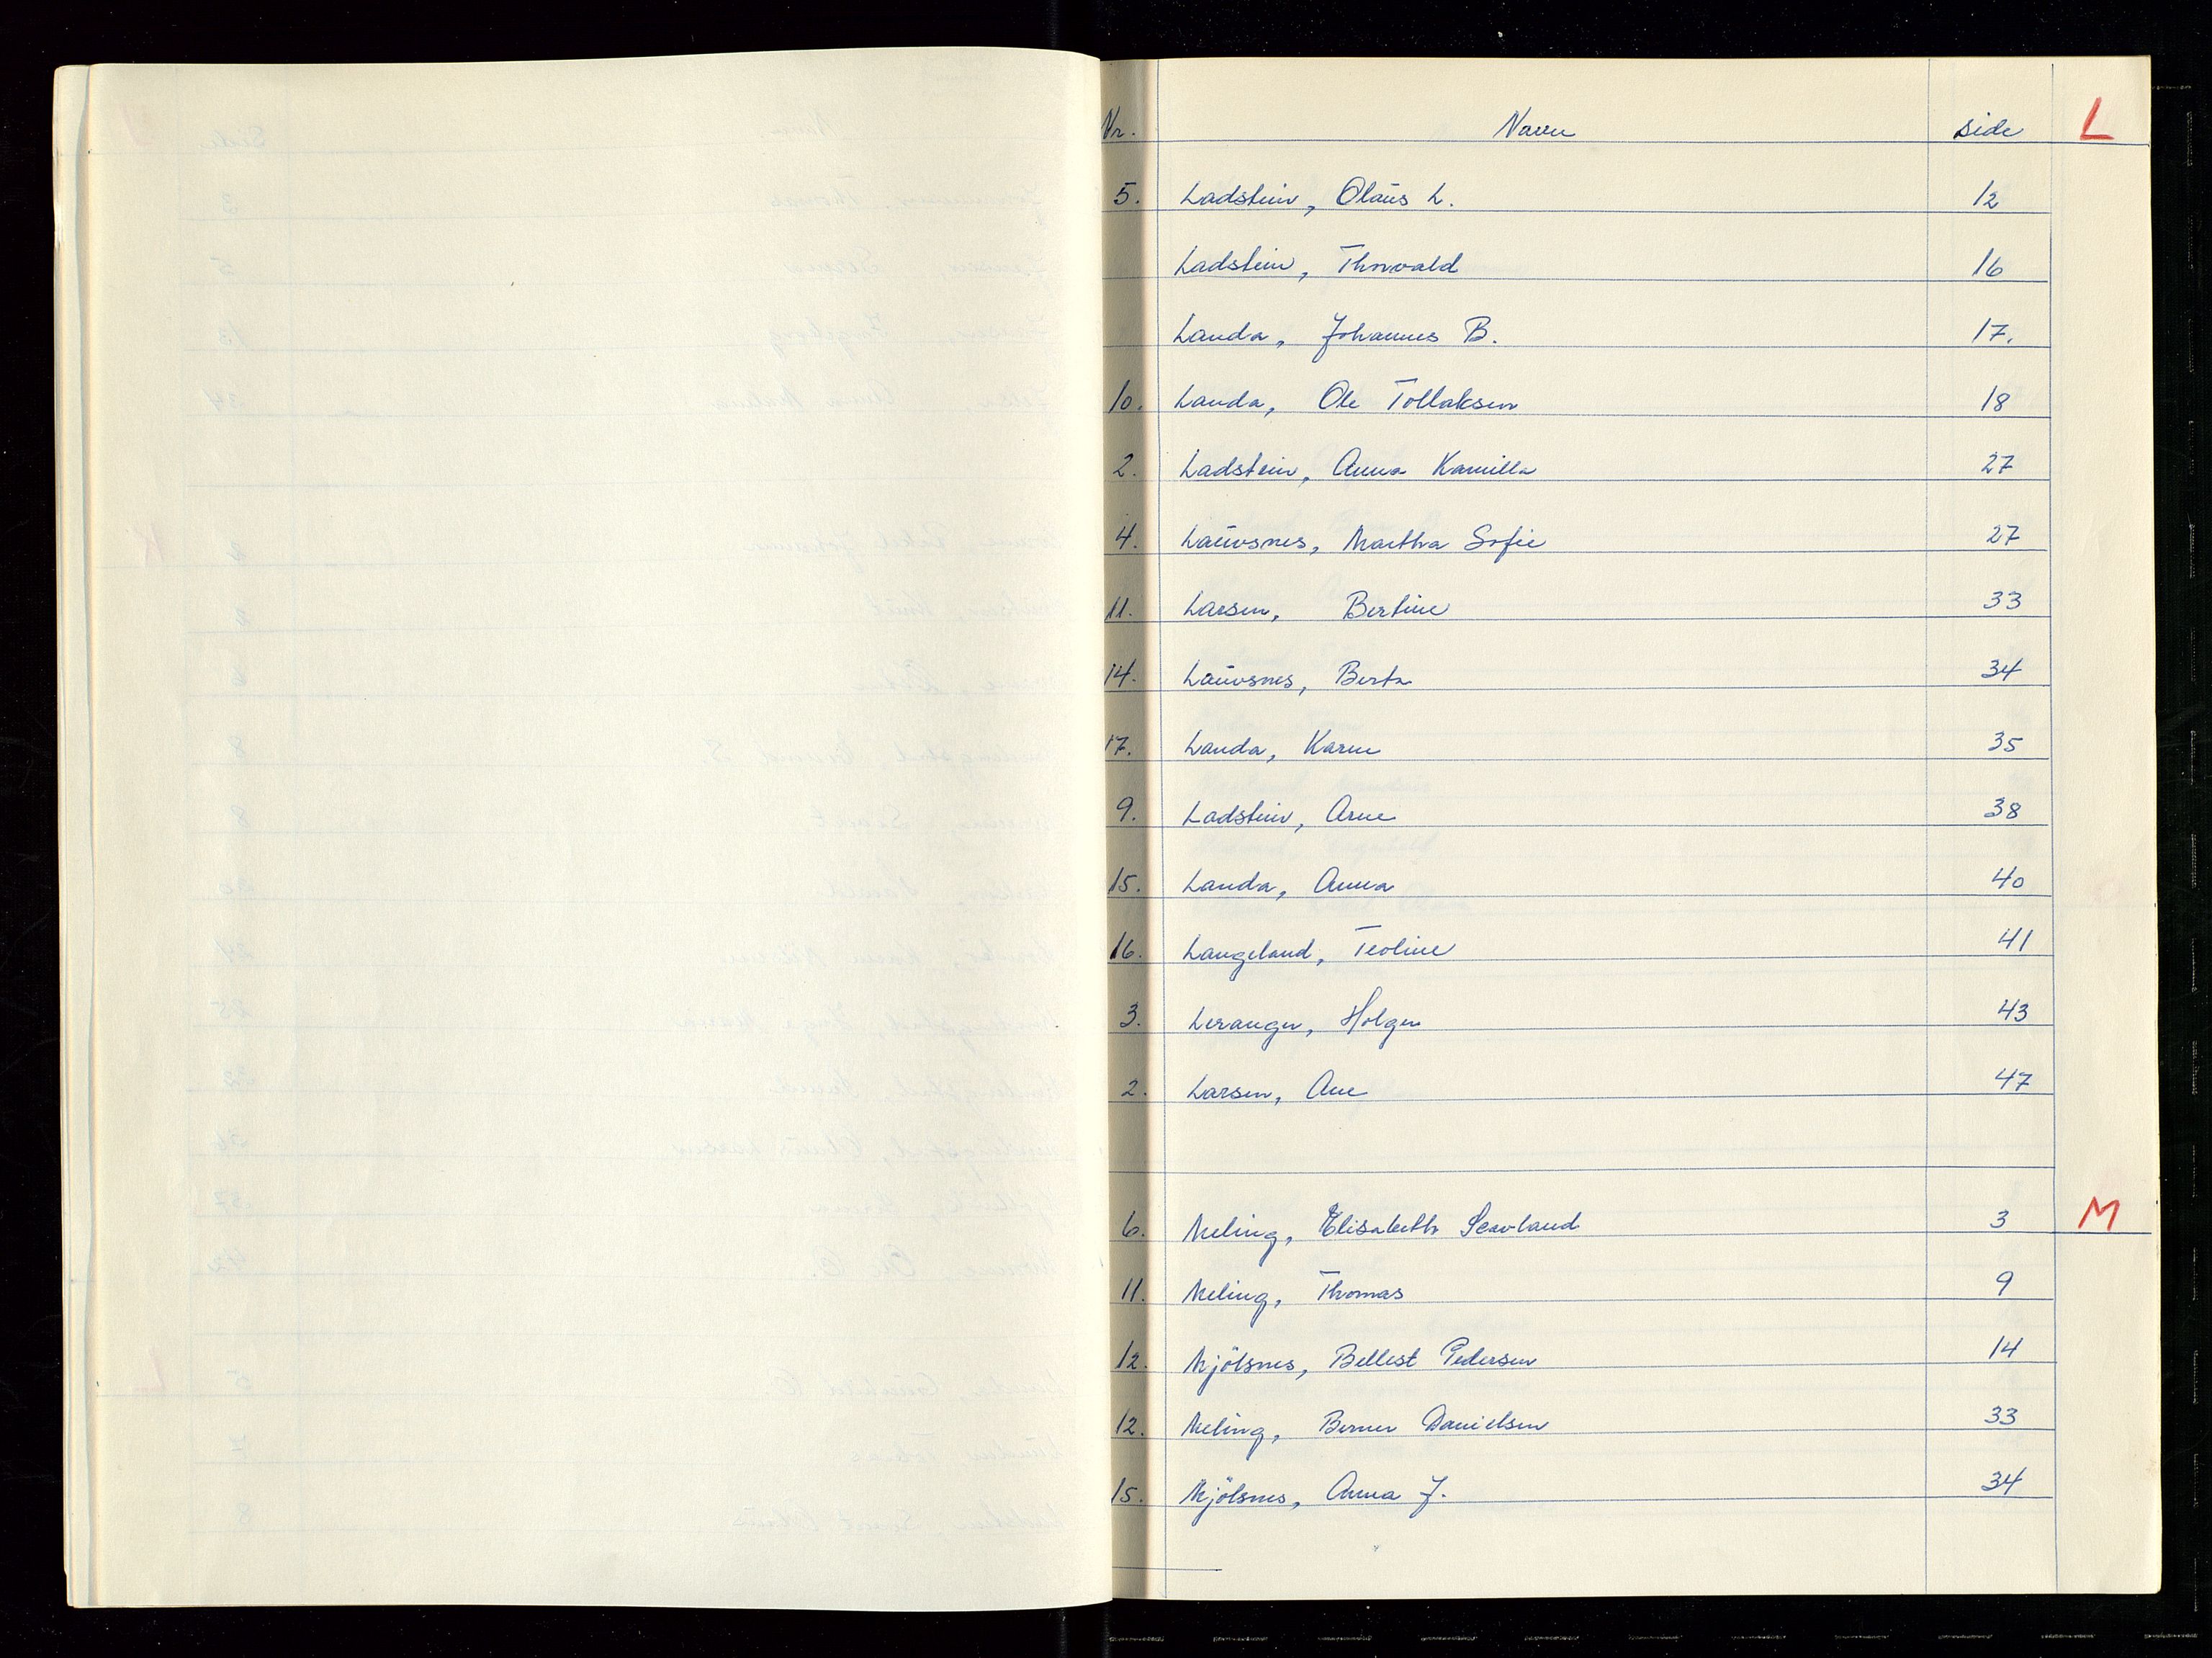 Nr. Navn side L
5. Ladstein, Olaŭs L. 12
Ladstein, Thorvald 16
Landa, Johannes B. 17.
10. Landa, Ole Tollaksen 18
2. Ladstein, Anna Kamilla 27
4. Laŭvsnes, Martha Sofie 27
11. Larsen, Bertine 33
14. Laŭvsnes, Berta 34
17. Landa, Karen 35
9. Ladstein, Arne 38
15. Landa, Anna 40
16. Langeland, Teoline 41
3. Leranger, Holger 43
2. Larsen, Ane 47
6. Meling, Elisabeth Scavland 3 M
11. Meling, Thomas 9
12. Mjölsnes, Bellest Pedersen 14
12. Meling, Berner Danielsen 33
15. Mjölsnes, Anna J. 34